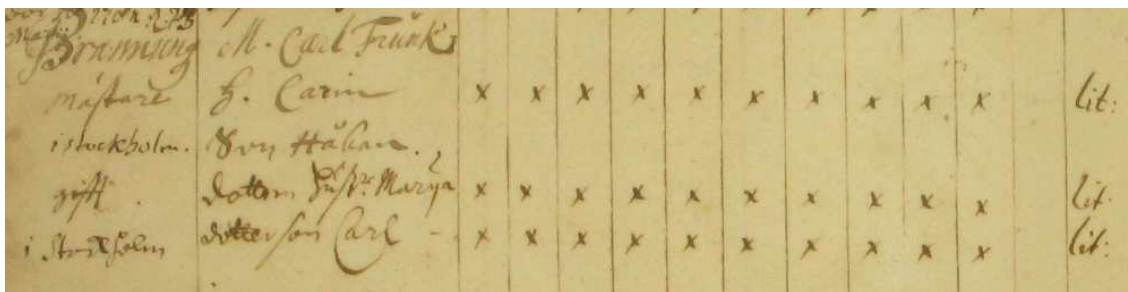 M. Carl Funk
mästare H. Carin x x x x x x x x x x lit:
i stockholm. Son Håkan.
gift. dottern Hust: Marÿa x x x x x x x x x x lit.
i Stockholm dotterson Carl - x x x x x x x x x x lit: